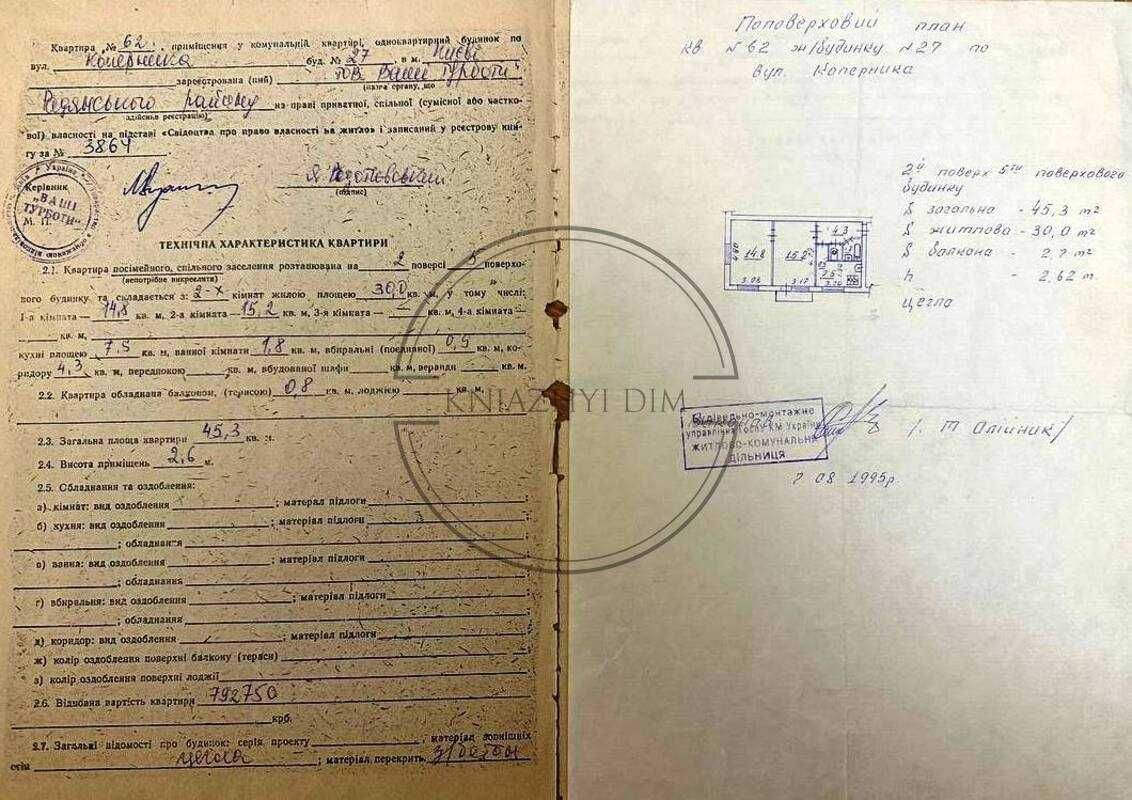 Квартира № 62, приміщення у комунальній квартирі, одноквартирний будинок по
вул. Коперника буд. № 27 в м. Києві
зареєстрована (ний) ТОВ "Ваші турботи"
(назва органу, що
Радянського району на праві приватної, спільної (сумісної або частко-
здійснив реєстрацію)
вої) власності на підставі «Свідоцтва про право власності на житло» і записаний у реєстрову кни-
гу за № 3864
Керівник
М. П.
(підпис)
Україна
„ВАШІ
ТУРБОТИ"
ТЕХНІЧНА ХАРАКТЕРИСТИКА КВАРТИРИ
2.1. Квартира посімейного, спільного заселення розташована на 2 поверсі 5 поверхо-
(непотрібне викреслити)
вого будинку та складається з: 2-х кімнат жилою площею 30,0 кв. м, у тому числі:
1-а кімната — 14,8 кв. м, 2-а кімната — 15,2 кв. м, 3-я кімната — кв. м, 4-а кімната —
кв. м,
кухні площею 7,5 кв. м, ванної кімнати 1,8 кв. м, вбиральні (поєднаної) 0,9 кв. м, ко-
ридору 4,3 кв. м, передпокою кв. м, вбудованої шафи кв. м, веранди кв. м.
2.2. Квартира обладнана балконом, (терасою) 0,8 кв. м, лоджією кв. м.
2.3. Загальна площа квартири 45,3 кв. м.
2.4. Висота приміщень 2,6 м.
2.5. Обладнання та оздоблення:
а) кімнат: вид оздоблення ; матеріал підлоги
б) кухня: вид оздоблення ; матеріал підлоги
; обладнання
в) ванна: вид оздоблення ; матеріал підлоги
; обладнання
г) вбиральня: вид оздоблення ; матеріал підлоги
; обладнання
д) коридор: вид оздоблення ; матеріал підлоги
ж) колір оздоблення поверхні балкону (тераси)
з) колір оздоблення поверхні лоджії
2.6. Відновна вартість квартири 792750
крб.
2.7. Загальні відомості про будинок: серія проекту , матеріал зовнішніх
стін цегла ; матеріал перекрить з/бетон
KNIAZHYI DIM
Поповерховий план
кв. N 62 ж/будинку N 27 по
вул. Коперника
2й поверх 5ти поверхового
будинку
S загальна - 45,3 m²
S житлова - 30,0 m²
S балкона - 2,7 m²
h - 2,62 m
цегла
14.8
15.2
4.3
7.5
3.06
3.17
Будівельно-монтажне
управління Госпу КМ України
ЖИТЛОВО-КОМУНАЛЬНА
ДІЛЬНИЦЯ
/. Т Олійник/
7 08 1995р.